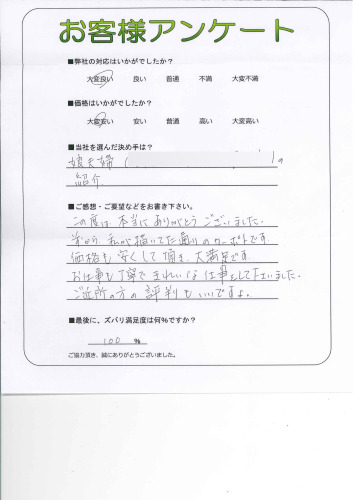 お客様アンケート
■弊社の対応はいかがでしたか?
大変良い 良い 普通 不満 大変不満
■価格はいかがでしたか?
大変安い 安い 普通 高い 大変高い
■当社を選んだ決め手は?
娘夫婦( )の
紹介
■ご感想・ご要望などをお書き下さい。
この度は本当にありがとうございました。
私が描いてた通りのカーポートです
価格も安くして頂き、大満足です
お仕事も丁寧できれいな仕事をして下さいました。
ご近所の方の評判もいいですよ。
■最後に、ズバリ満足度は何%ですか?
100 %
ご協力頂き、誠にありがとうございました。